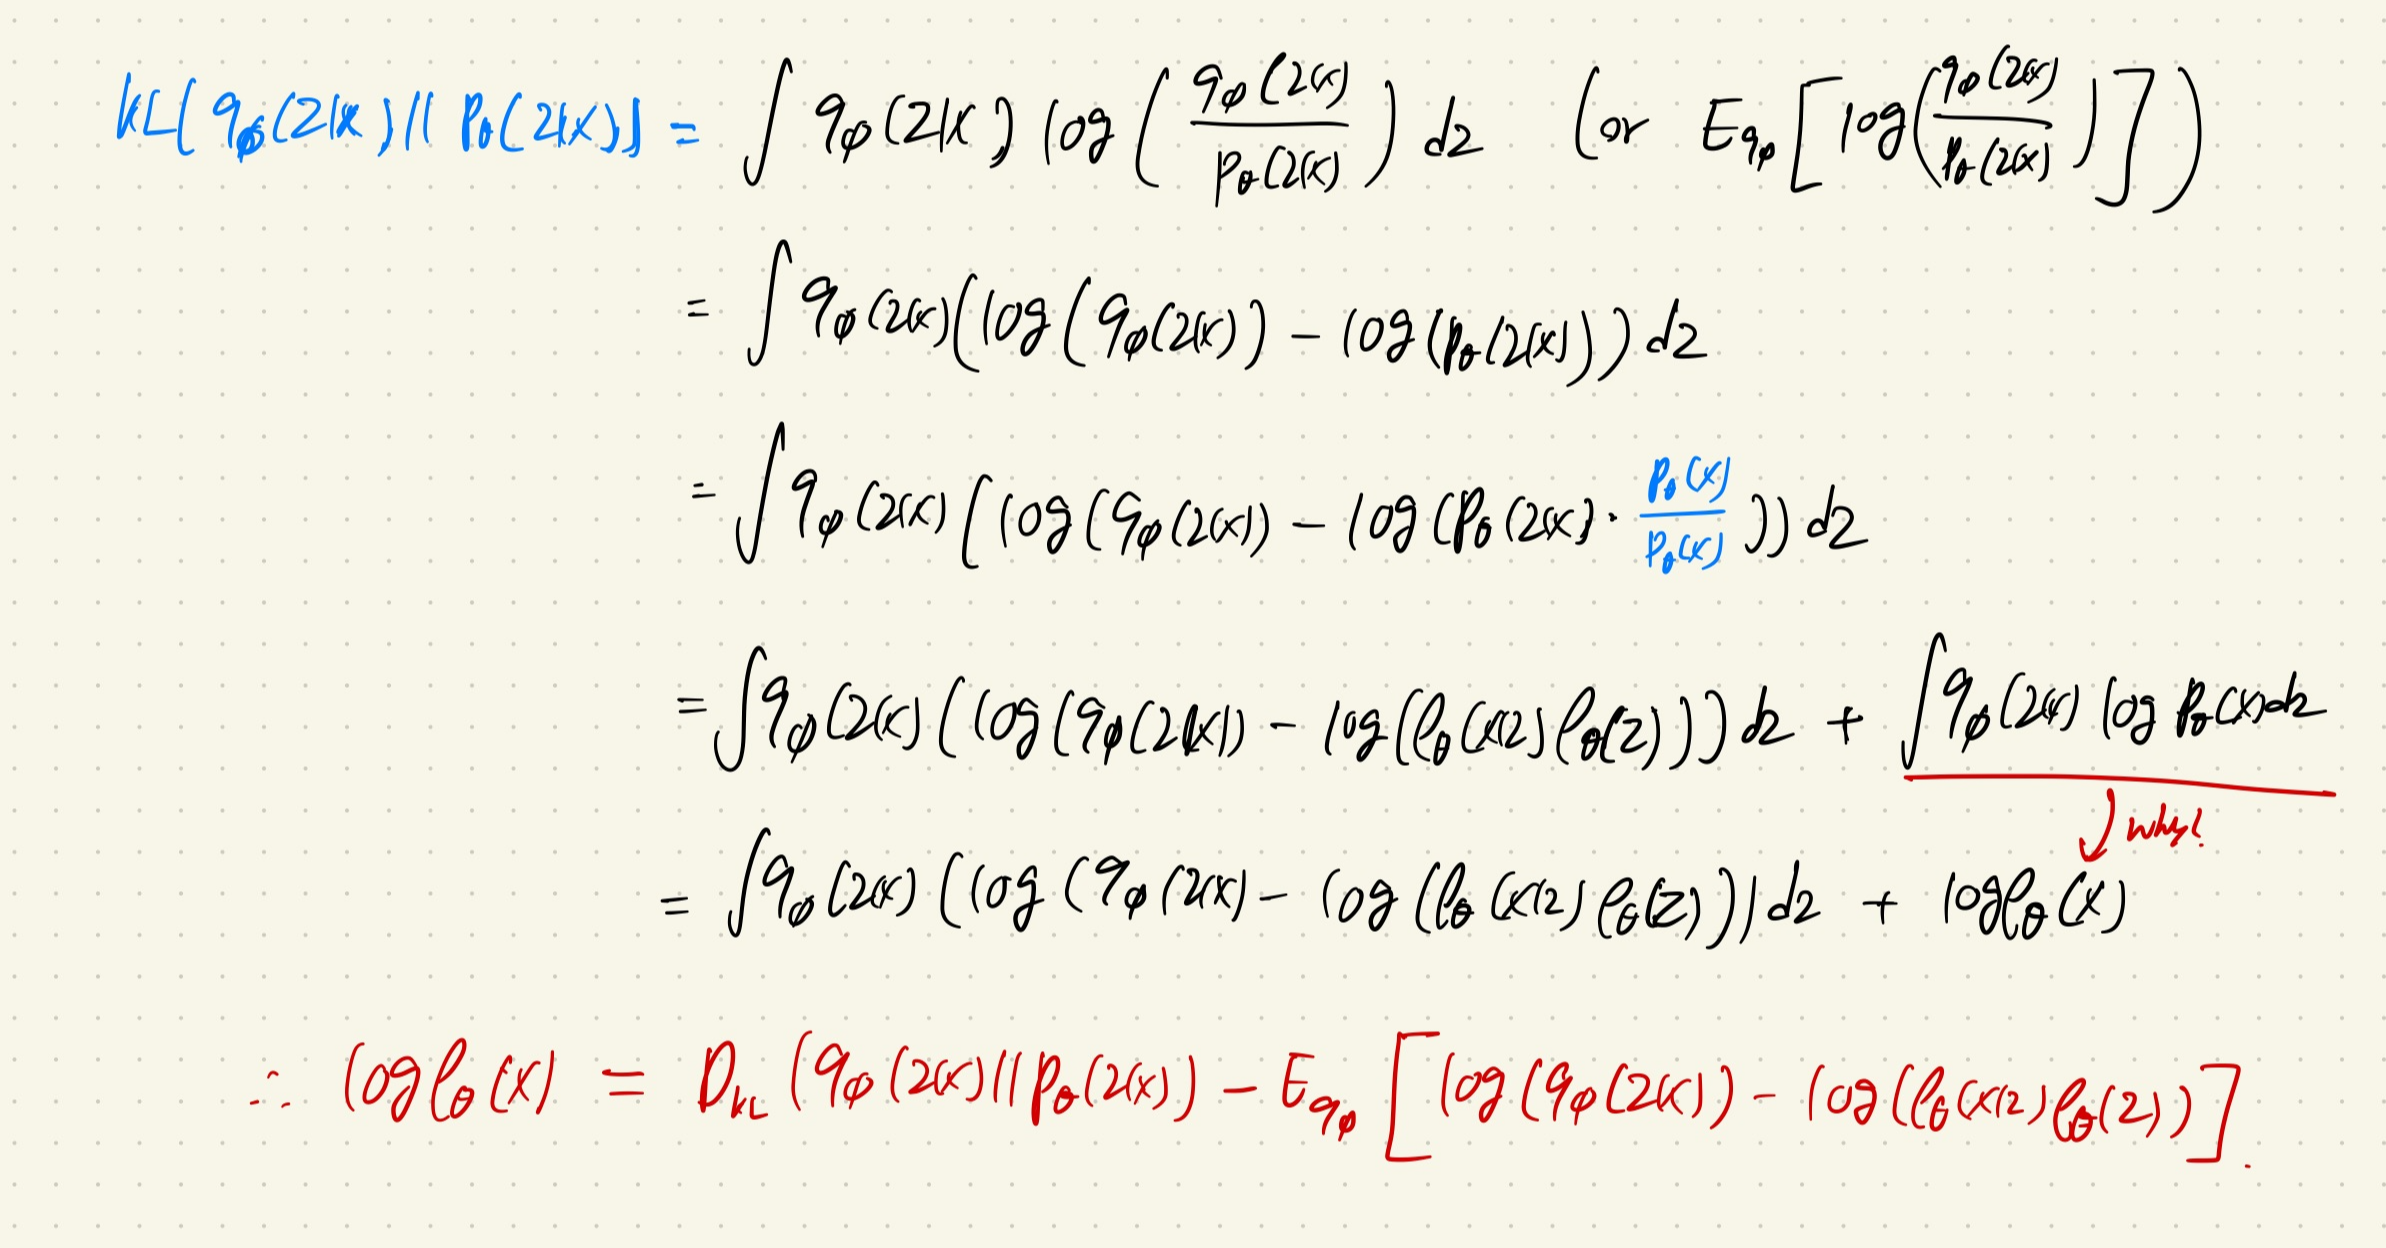 KL(q_φ(z|x) || p_θ(z|x)) = ∫ q_φ(z|x) log( q_φ(z|x) / p_θ(z|x) ) dz (or E_{q_φ}[ log( q_φ(z|x) / p_θ(z|x) ) ])
= ∫ q_φ(z|x) (log(q_φ(z|x)) − log(p_θ(z|x))) dz
= ∫ q_φ(z|x) (log(q_φ(z|x)) − log(p_θ(z|x) · p_θ(x) / p_θ(x) )) dz
= ∫ q_φ(z|x) (log(q_φ(z|x)) − log(p_θ(x|z) p_θ(z))) dz + ∫ q_φ(z|x) log p_θ(x) dz
↓ why?
= ∫ q_φ(z|x) (log(q_φ(z|x) − log(p_θ(x|z) p_θ(z))) dz + log p_θ(x)
∴ log p_θ(x) = D_KL(q_φ(z|x) || p_θ(z|x)) − E_{q_φ}[ log(q_φ(z|x)) − log(p_θ(x|z) p_θ(z)) ].